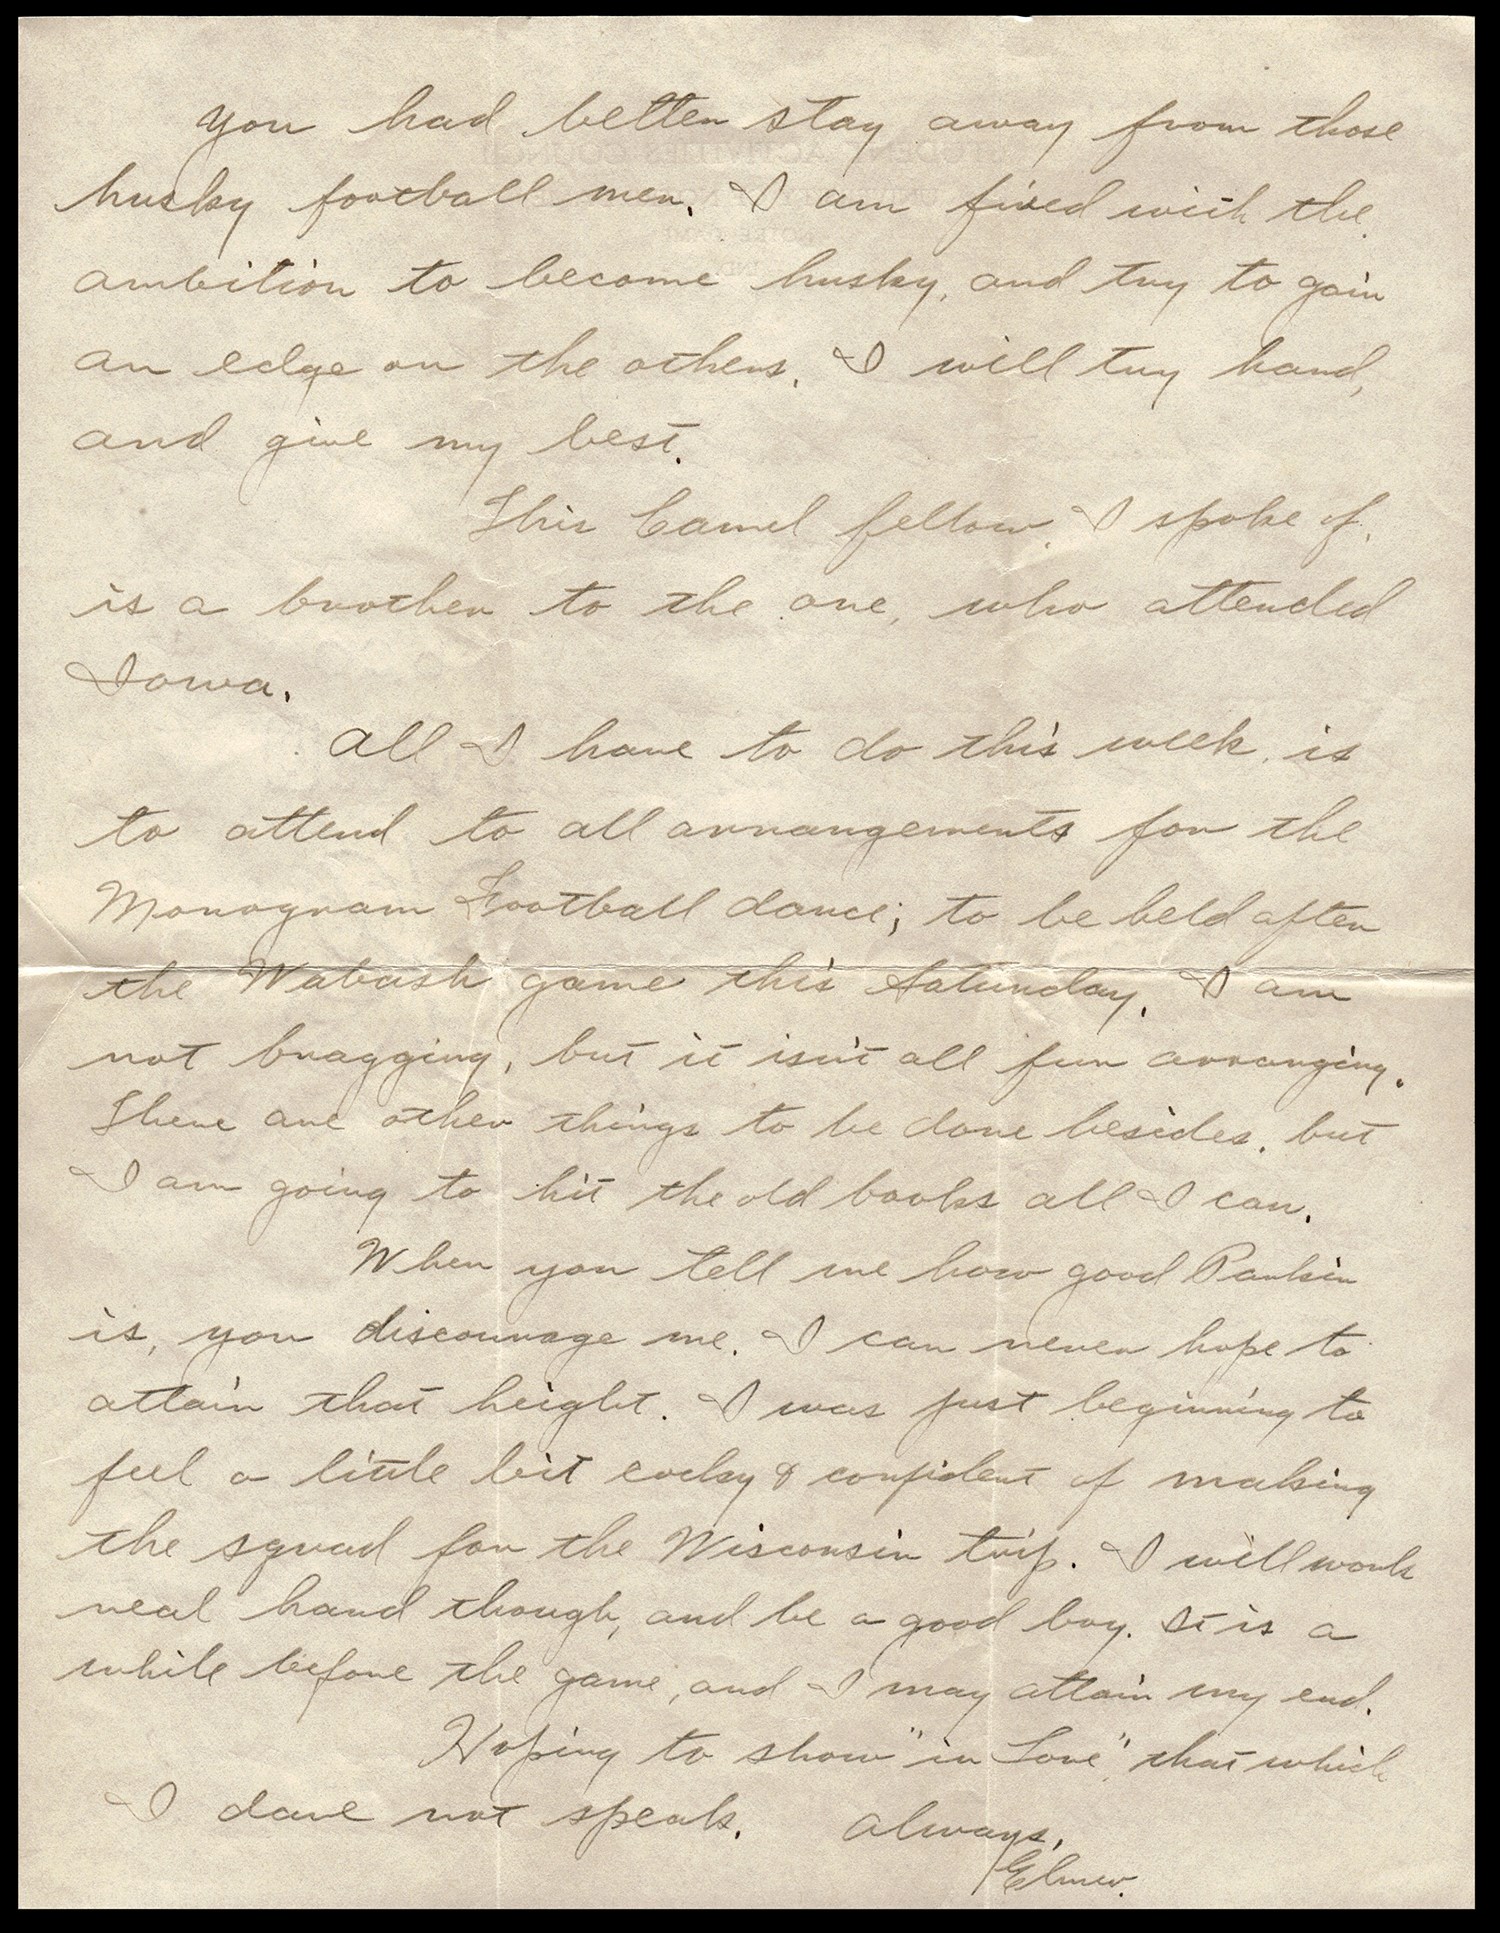 You had better stay away from those
husky football men. I am fired with the
ambition to become husky, and try to gain
an edge on the others. I will try hard,
and give my best.
This Carmel fellow, I spoke of,
is a brother to the one, who attended
Iowa.
All I have to do this week, is
to attend to all arrangements for the
Monogram Football dance; to be held after
the Wabash game this Saturday. I am
not bragging, but it isn't all fun arranging.
There are other things to be done besides, but
I am going to hit the old books all I can.
When you tell me how good Parkin
is, you discourage me. I can never hope to
attain that height. I was just beginning to
feel a little bit cocky & confident of making
the squad for the Wisconsin trip. I will work
real hard though, and be a good boy. It is a
while before the game, and I may attain my end.
Hoping to show "in Love", that which
I dare not speak. Always,
Elmer.